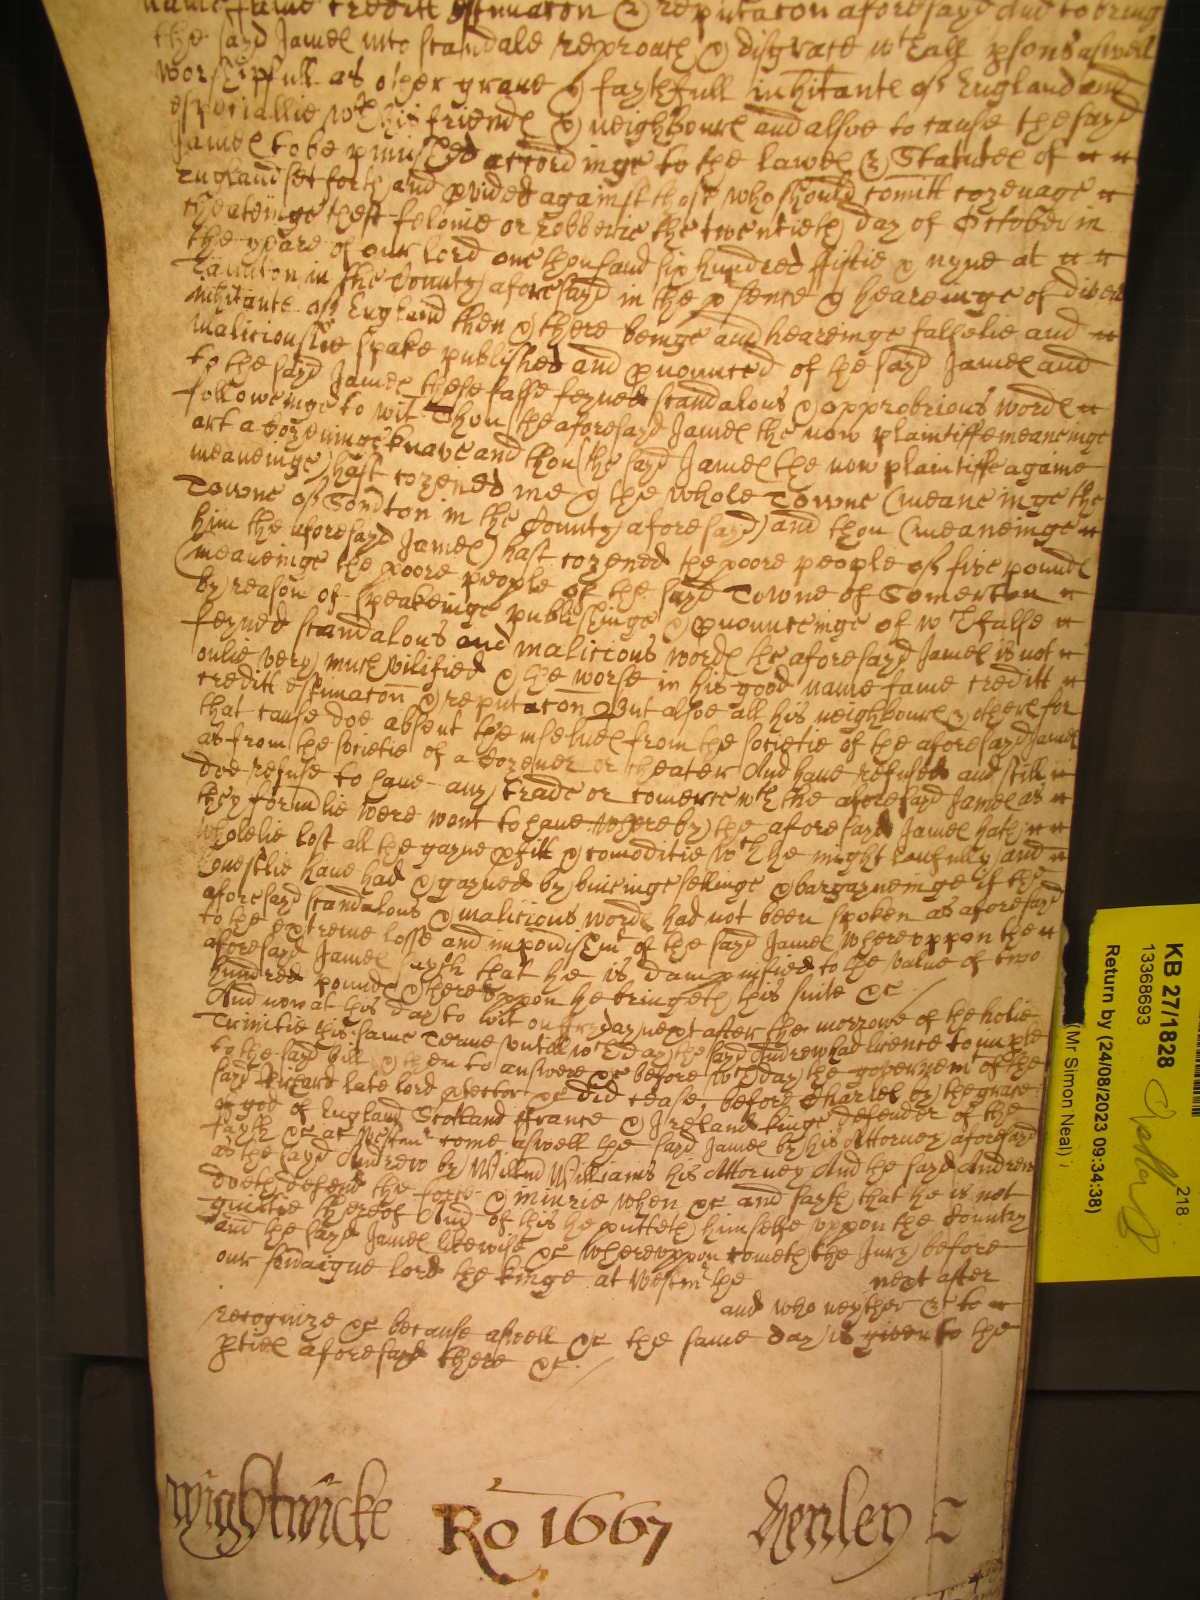 name fame creditt estimacon & reputacon aforesayd And to bring
the sayd James into scandale reproach & disgrace wth all psons aswell
worshipfull as other grave & faythfull inhitants of England and
especiallie wth his friends & neighbours and alsoe to cause the sayd
James to be punished accordinge to the lawes & Statutes of
England set forth and pvided against those who should comitt cozenage
cheateinge theft felonie or robberie the twentieth day of October in
the yeare of our lord one thousand six hundred fiftie & nyne at
Taunton in the County aforesayd in the psence & heareinge of divers
inhitants of England then & there beinge and heareinge falselie and
maliciouslie spake published and pnounced of the sayd James and
to the sayd James these false feyned scandalous & opprobrious words
followeinge to wit Thou (the aforesayd James the now plaintiffe meaneinge
art a Cozeninge knave and thou (the sayd James the now plaintiffe againe
meaneinge) hast cozened me & the whole Towne (meaneinge the
Towne of Somton in the County aforesayd) and thou (meaneinge
him the aforesayd James) hast cozened the poore people of five pounds
(meaneinge the poore people of the sayd Towne of Somerton
by reason of speakeinge publishinge & pnounceinge of wch false
feyned scandalous and malicious words the aforesayd James is not
onlie very much vilified & the worse in his good name fame creditt
creditt estimacon & reputacon But alsoe all his neighbours & others for
that cause doe absent themselves from the societie of the aforesayd James
as from the societie of a Cozener or cheater And have refused and still
doe refuse to have any trade or comerce wth the aforesayd James as
they formlie were wont to have whereby the aforesayd James hath
wholelie lost all the gayne pfitt & comoditie wch he might laufully and
honestlie have had & gayned by buieinge sellinge & bargayneinge if the
aforesayd scandalous & malicious words had not been spoken as aforesayd
to the extreme losse and impovishmt of the sayd James whereuppon the
aforesayd James sayth that he is dampnified to the value of two
hundred pounds & thereuppon he bringeth this suite &c
And now at this day to wit on fryday next after the morrowe of the holie
Trinitie this same Terme untill wch day the sayd Andrew had licence to imple
to the sayd bill & then to answere &c before wch day the governemt of the
sayd Richard late lord ptector &c did cease before Charles by the grace
of god of England Scotland ffrance & Ireland kinge defender of the
fayth &c at Westmr come aswell the sayd James by his Attorney aforesayd
as the sayd Andrew by Willm Williams his Attorney And the sayd Andrew
doeth defend the force & iniurie when &c and sayth that he is not
guiltie thereof And of this he putteth himselfe uppon the Country
and the sayd James likewise &c Whereuppon cometh the Jury before
our soveraigne lord the kinge at Westmr the next after
and who neyther &c to
recognize &c because aswell &c the same day is given to the
pties aforesayd there &c
Wightwicke Ro 1667 Henley
KB 27/1828
13368693
218
Return by (24/08/2023 09:34:38)
(Mr Simon Neal)